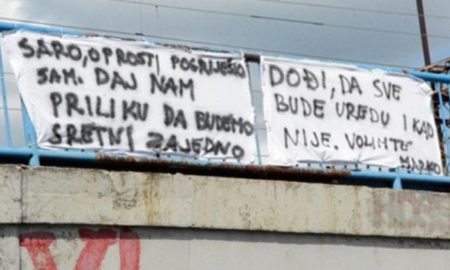 SARO, OPROSTI POGRIJEŠIO
SAM. DAJ NAM
PRILIKU DA BUDEMO
SRETNI ZAJEDNO
DOĐI, DA SVE
BUDE UREDU I KAD
NIJE. VOLIM TE
MARKO